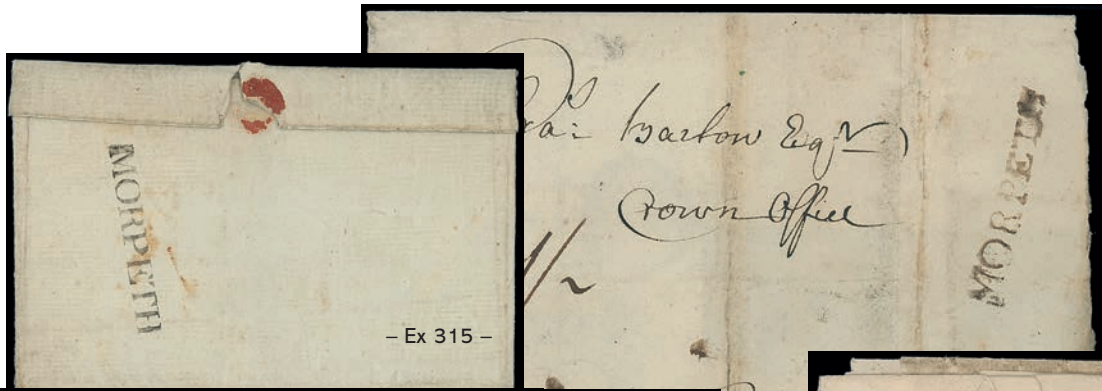 MORPETH
– Ex 315 –
Barlow Esqr
Crown Office
MORPETH